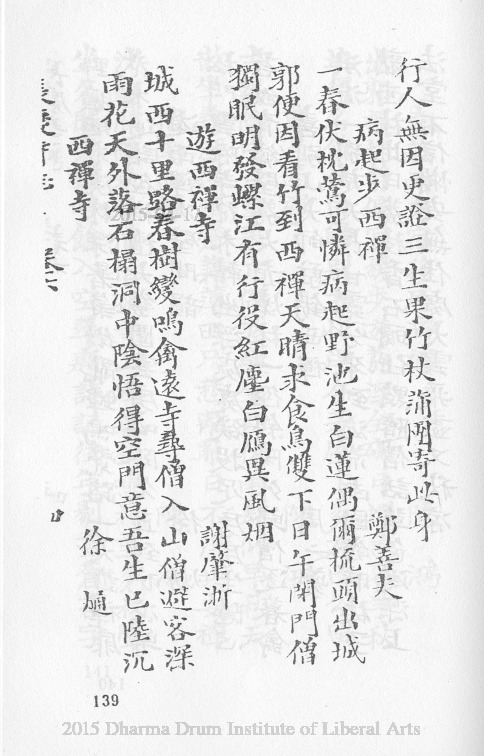 行人無因更證三生果竹杖蒲團寄此身
病起步西禪 鄭善夫
一春伏枕鶯可憐病起野池生白蓮偶爾梳頭出城
郭便因看竹到西禪天晴求食鳥雙下日午閑門僧
獨眠明發螺江有行役紅塵白鴈異風烟
遊西禪寺 謝肇淛
城西十里路春樹變鳴禽遠寺尋僧入山僧避客深
雨花天外落石榻洞中陰悟得空門意吾生已陸沉
西禪寺 徐𤊹
長慶寺志 卷六
139
2015 Dharma Drum Institute of Liberal Arts